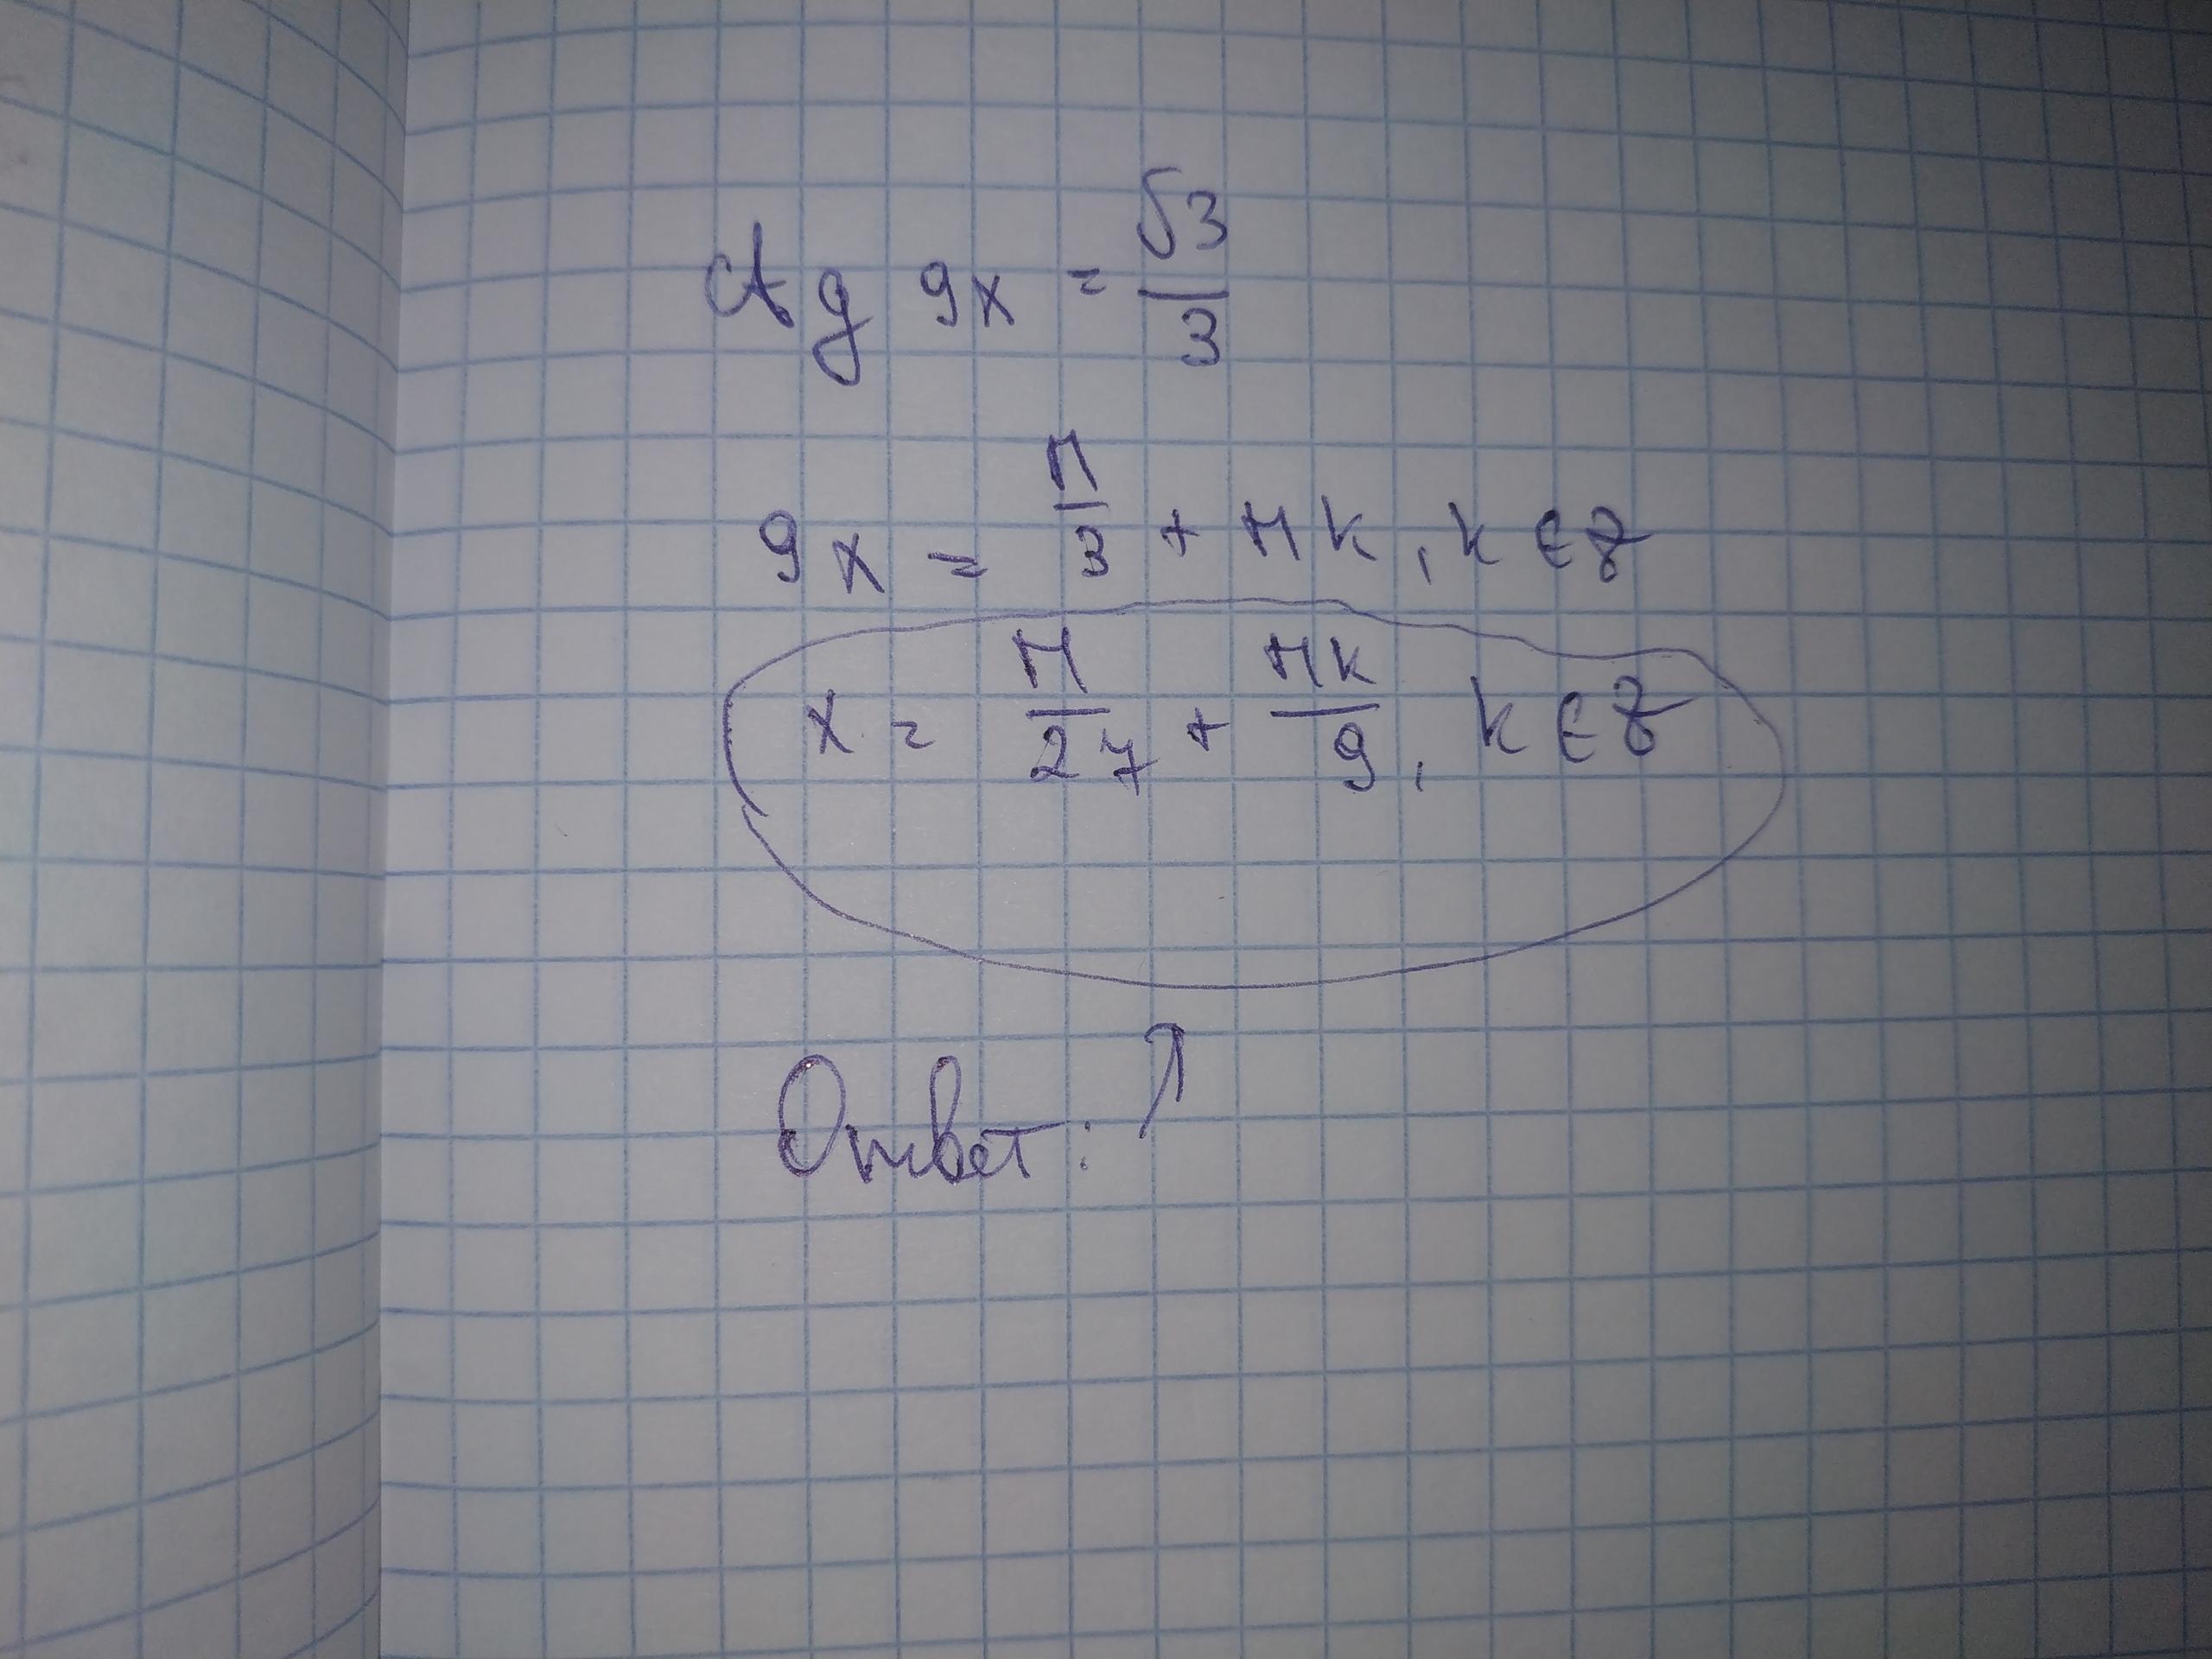 ctg 9x = √3/3
9x = π/3 + πk, k ∈ Z
x = π/27 + πk/9, k ∈ Z
Ответ: ↑